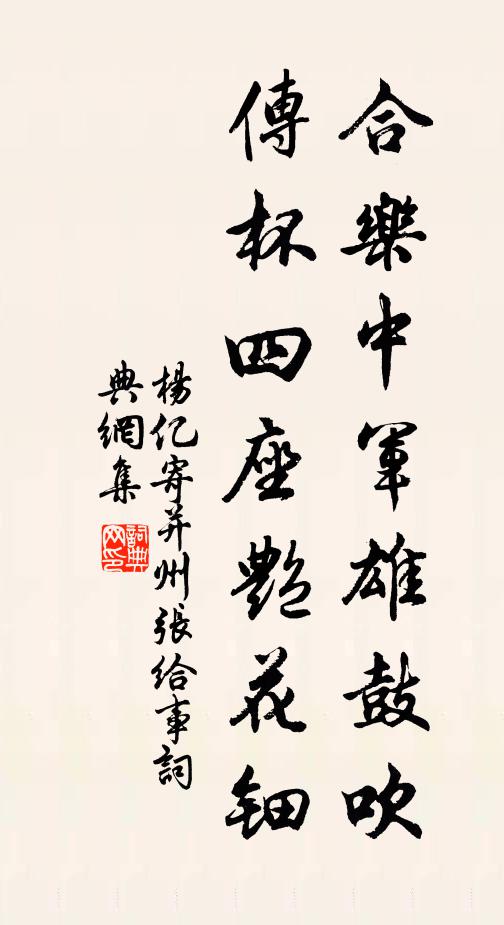 合樂中軍雄鼓吹
傳杯四座艷花鈿
楊亿寄并州張給事詞
典網集
詞典
网印